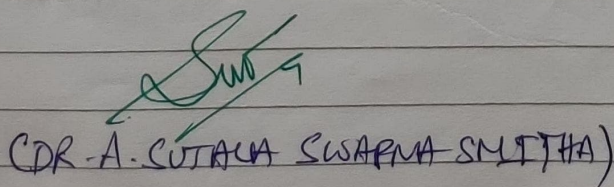 (DR. A. SUJALA SWAPNA SMITHA)